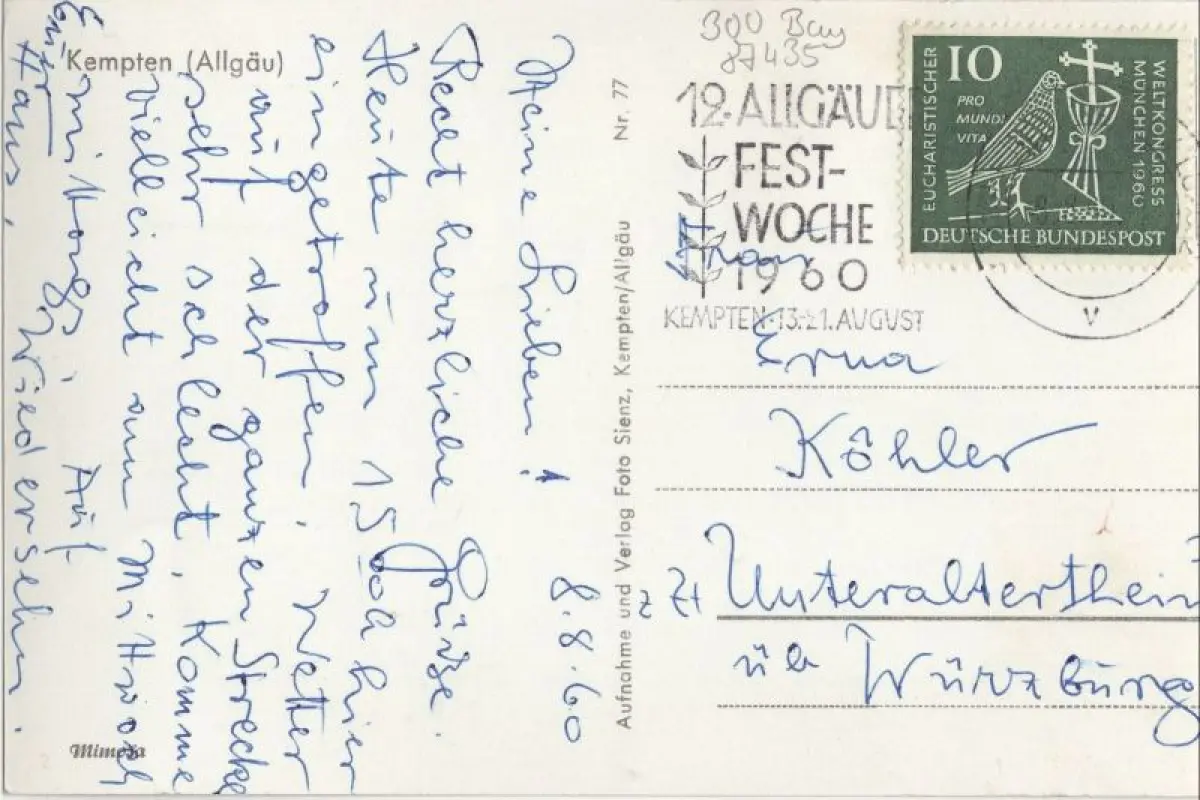 Kempten (Allgäu)
Meine Lieben!
8.8.60
Recht herzliche Grüsse.
Heute um 15 ooh hier
eingetroffen. Wetter
auf der ganzen Strecke
sehr schlecht. Komme
vielleicht am Mittwoch
mittags. Auf
Wiedersehn.
Euer
Hans,
Mimosa
Aufnahme und Verlag Foto Sienz, Kempten/Allgäu Nr. 77
300 Bay
87435
12. ALLGÄUE
FEST-
WOCHE
1960
KEMPTEN·13-21. AUGUST
V
10
PRO
MUNDI
VITA
EUCHARISTISCHER
WELTKONGRESS
MÜNCHEN 1960
DEUTSCHE BUNDESPOST
Frau
Erna
Köhler
z Zt Unteraltertheim
üb Würzburg